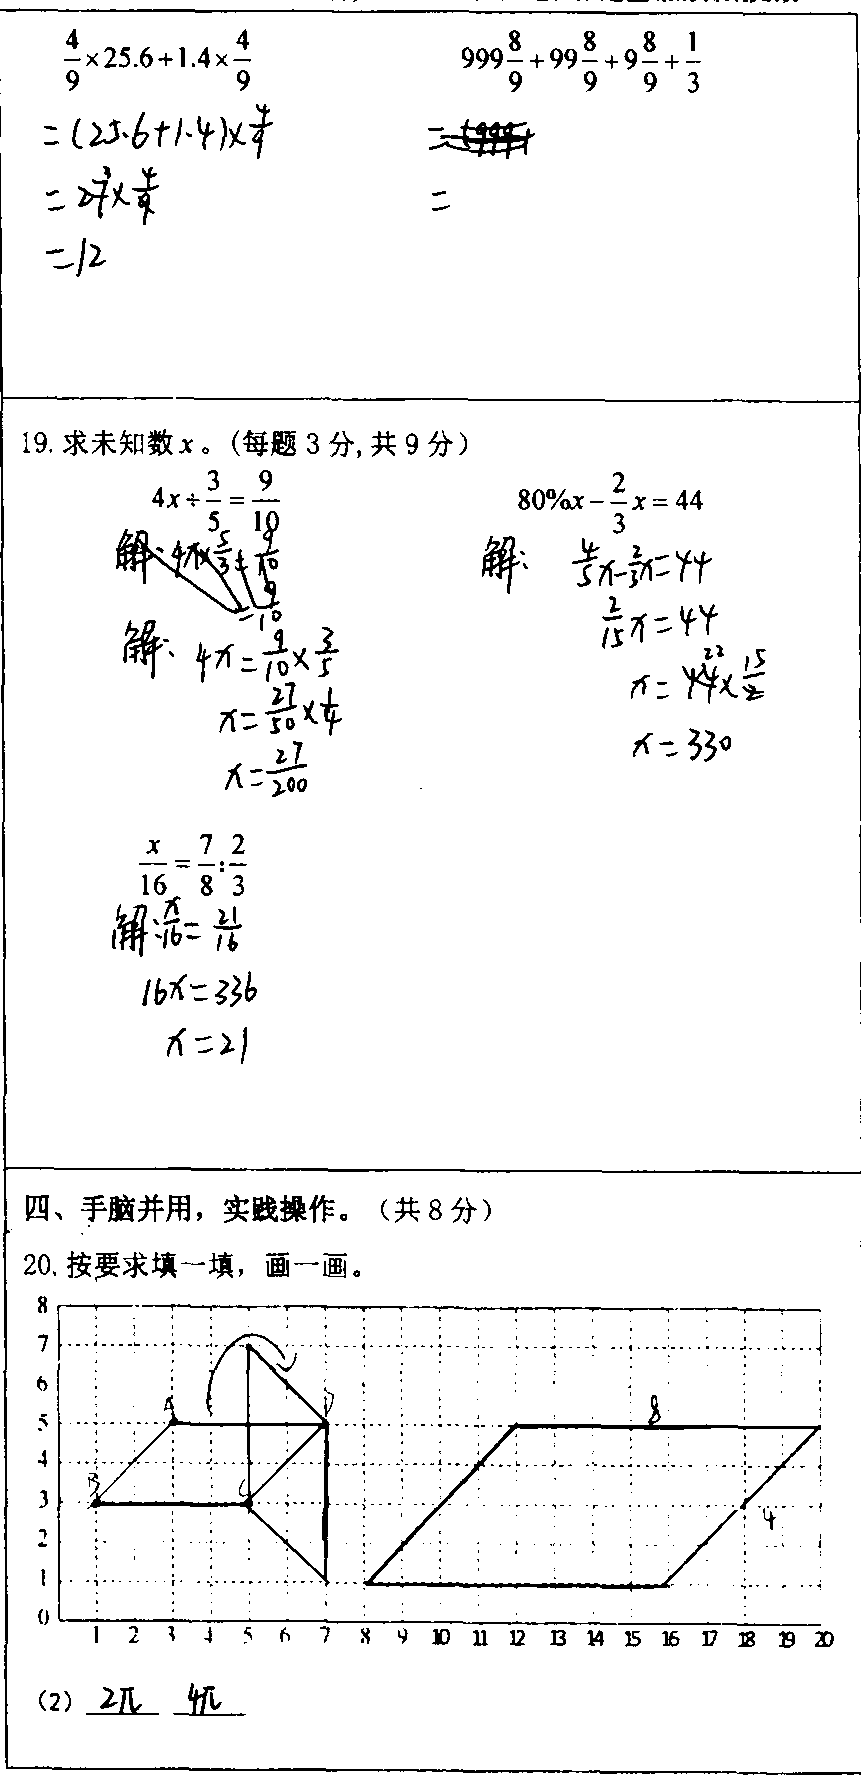 4/9×25.6+1.4×4/9
=(25.6+1.4)×4/9
=27×4/9
3
=12
999 8/9+99 8/9+9 8/9+1/3
=
=
19. 求未知数x。(每题3分,共9分)
4x÷3/5=9/10
解:4x×5/3=9/10
=9/10
解:4x=9/10×3/5
x=27/50×1/4
x=27/200
80%x-2/3x=44
解: 4/5x-2/3x=44
2/15x=44
22
x=44×15/2
x=330
x/16=7/8:2/3
解:x/16=21/16
16x=336
x=21
四、手脑并用，实践操作。（共8分）
20. 按要求填一填，画一画。
8
7
6
5
4
3
2
1
0
A
B
C
D
8
4
1 2 3 4 5 6 7 8 9 10 11 12 13 14 15 16 17 18 19 20
（2） 2π 4π